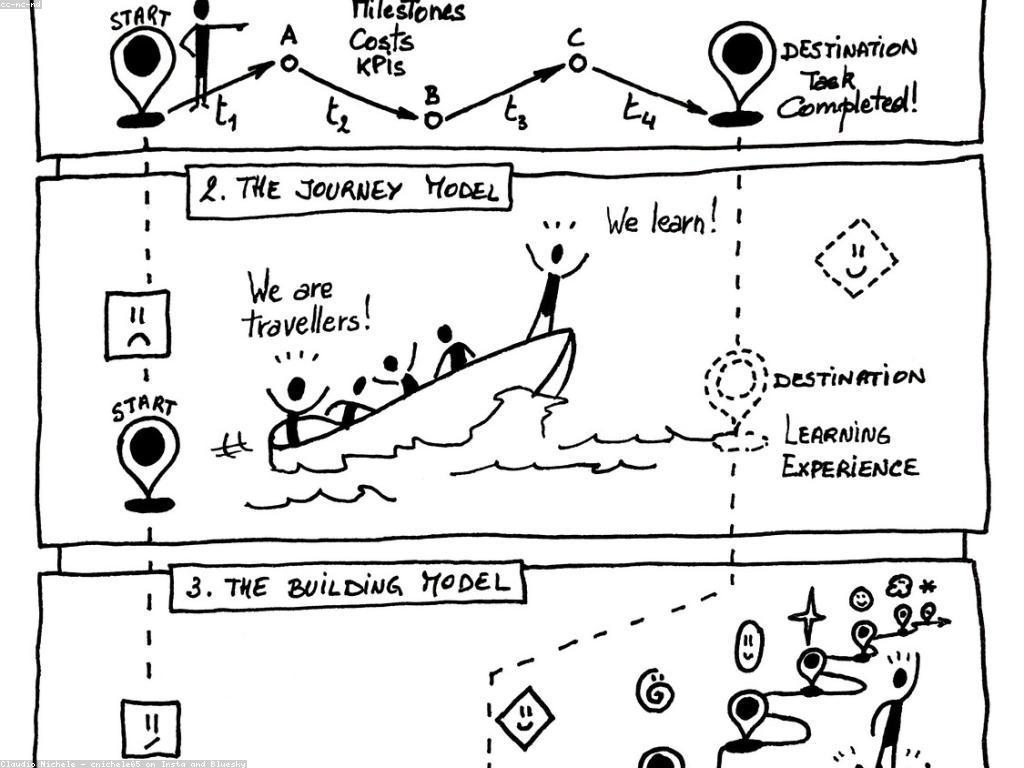 cc-nc-nd
START
A
B
C
Milestones
Costs
KPis
t1
t2
t3
t4
DESTINATION
Task
Completed!
2. THE JOURNEY MODEL
We learn!
We are
travellers!
START
DESTINATION
LEARNING
EXPERIENCE
3. THE BUILDING MODEL
Claudio Nichele - cnichele65 on Insta and Bluesky